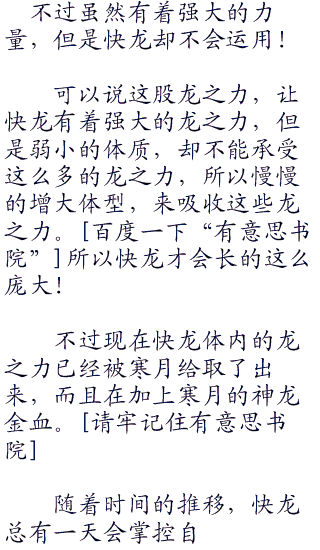 不过虽然有着强大的力
量，但是快龙却不会运用！
可以说这股龙之力，让
快龙有着强大的龙之力，但
是弱小的体质，却不能承受
这么多的龙之力，所以慢慢
的增大体型，来吸收这些龙
之力。[百度一下“有意思书
院”]所以快龙才会长的这么
庞大！
不过现在快龙体内的龙
之力已经被寒月给取了出
来，而且在加上寒月的神龙
金血。[请牢记住有意思书
院]
随着时间的推移，快龙
总有一天会掌控自